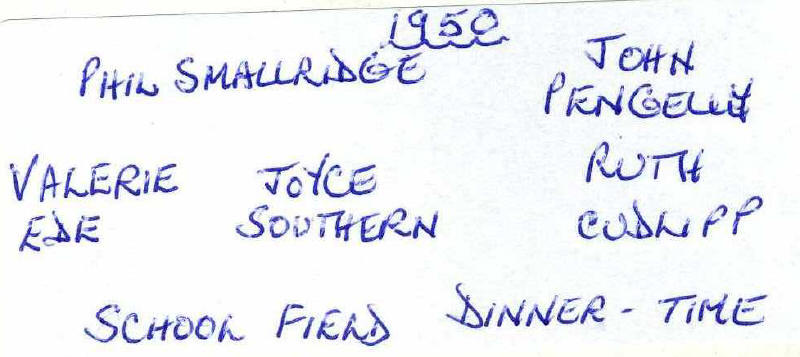 1950
PHIL SMALLRIDGE
JOHN
PENGELLY
VALERIE JOYCE RUTH
EDE SOUTHERN CUDLIPP
SCHOOL FIELD DINNER - TIME